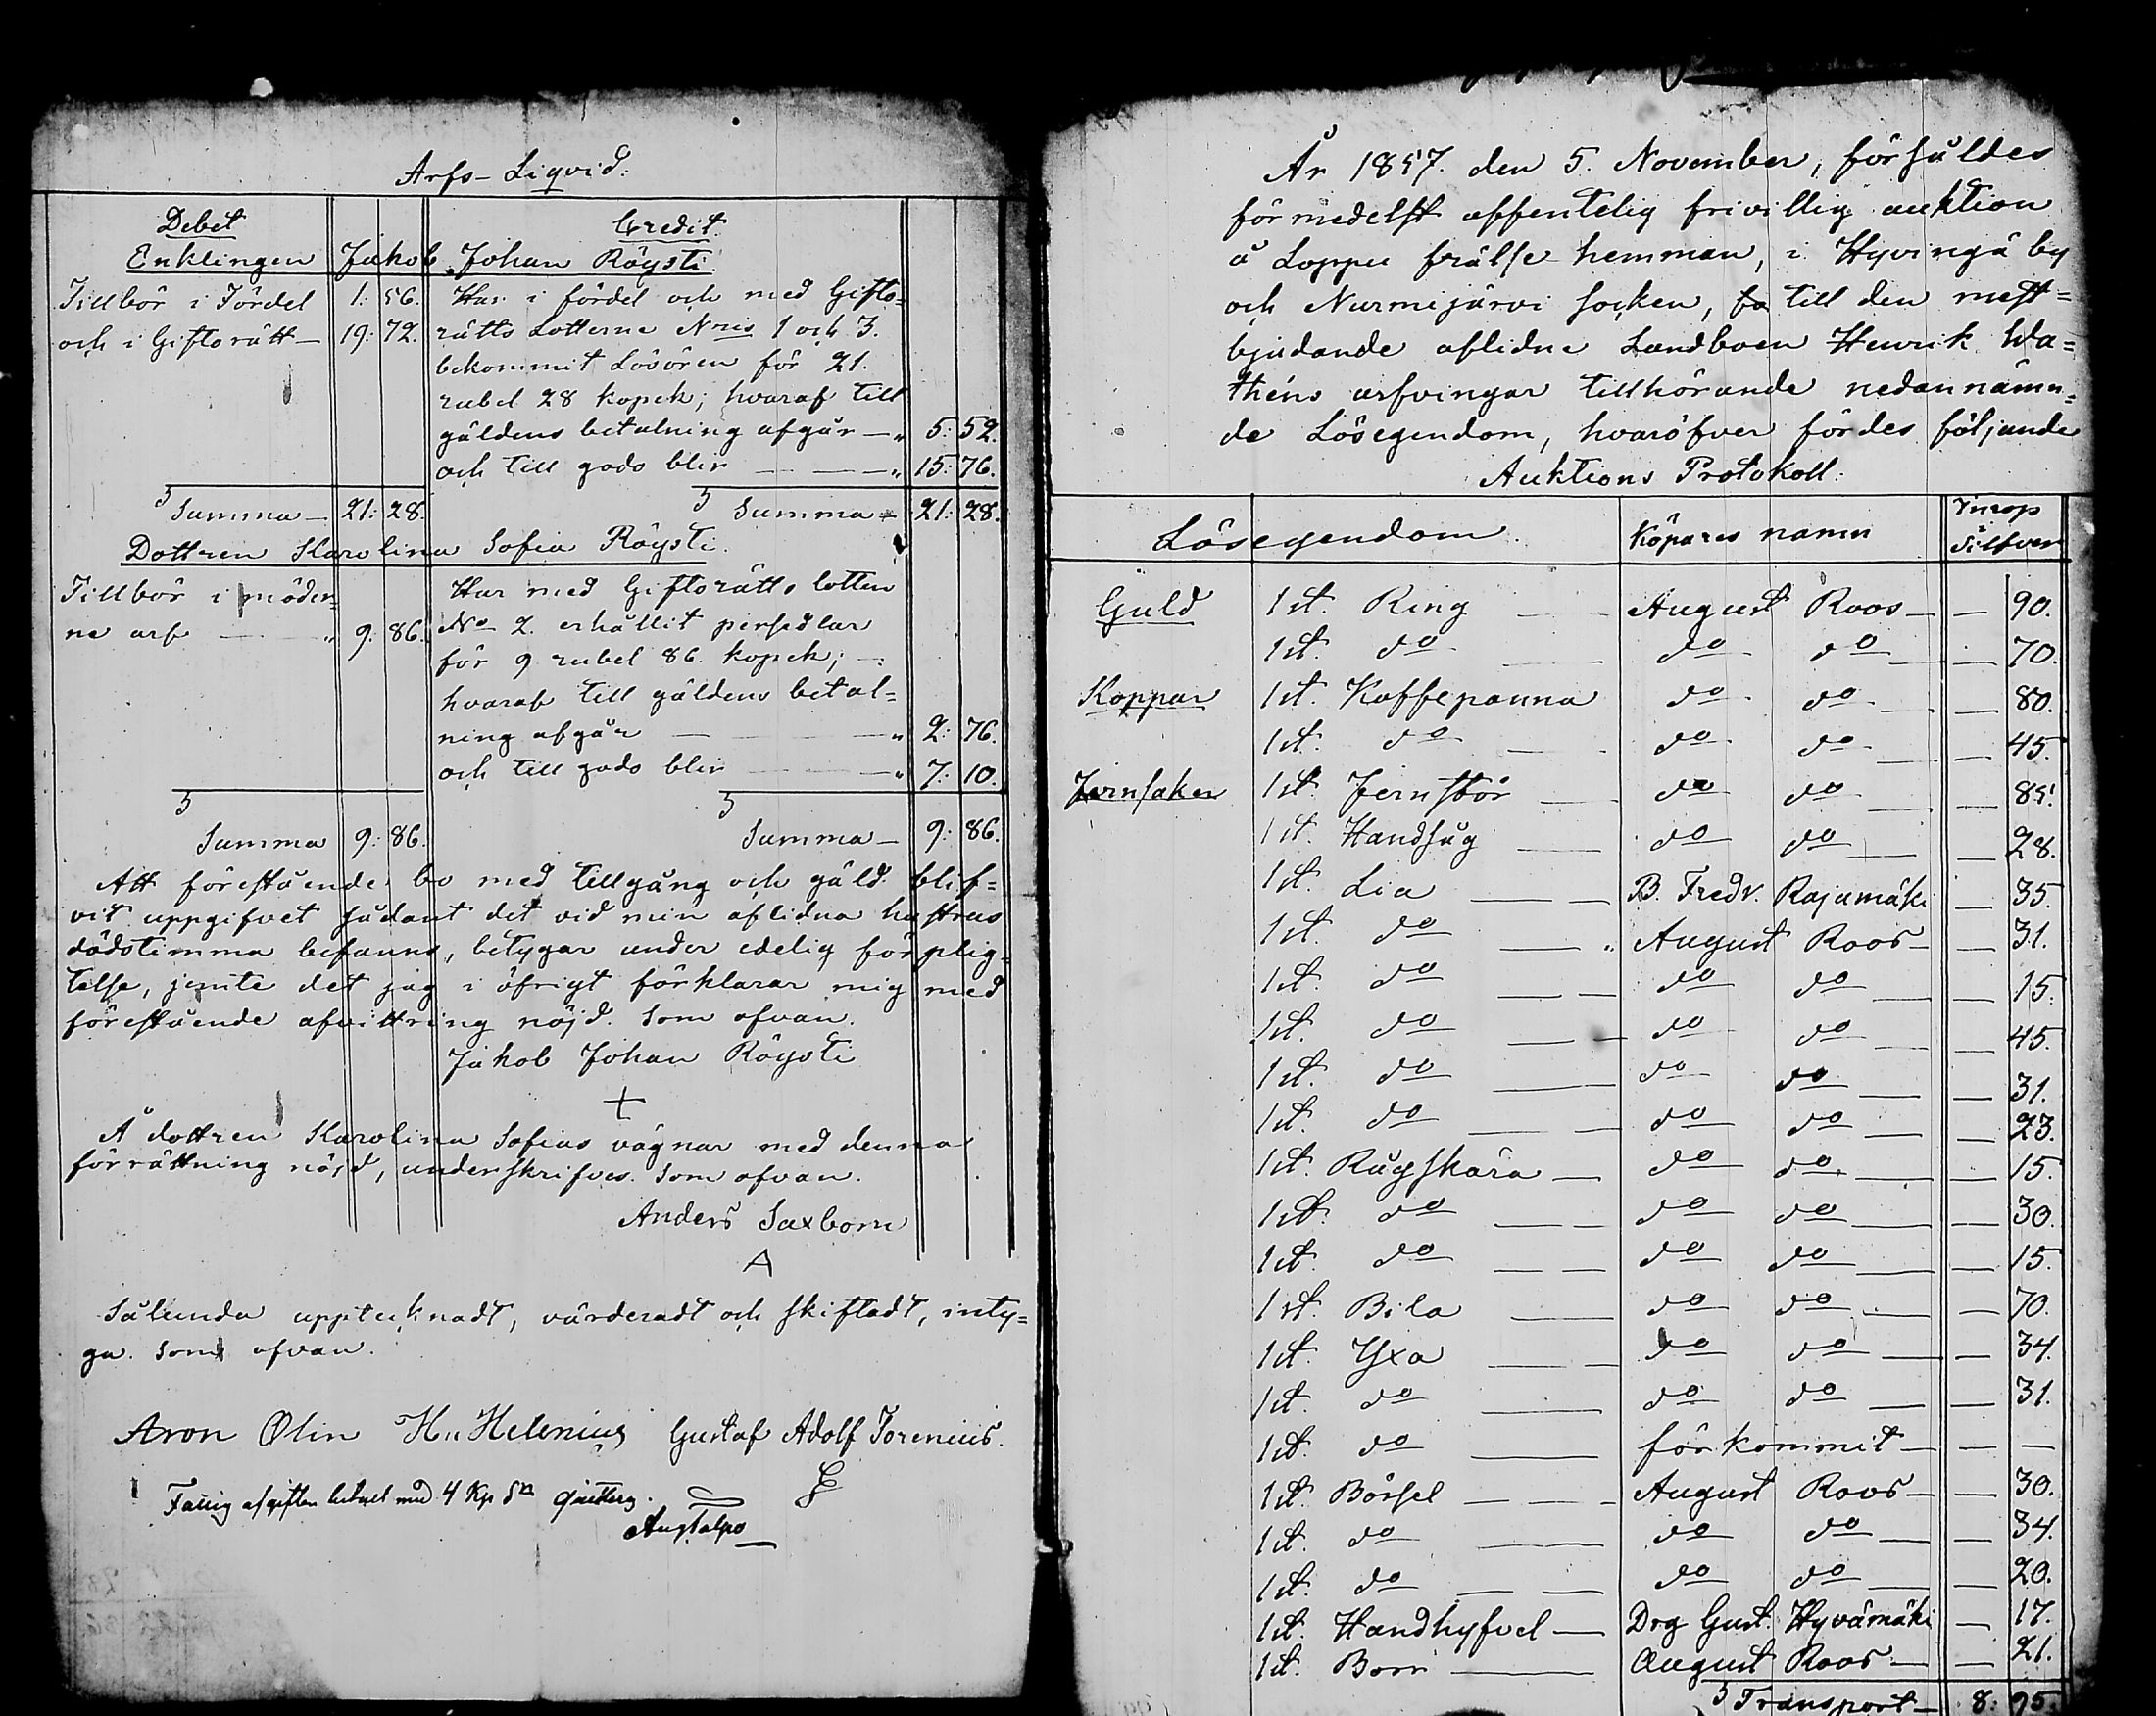 Arfs-Liqvid:
Debet Credit
Enklingen Jakob Johan Röysti.
Tillbör i Fördel 1: 56. Har i fördel och med Gifto=
och i Giftorätt — 19: 72. rätts Lotterne Nris 1 och 3.
bekommit Lösören för 21.
rubel 28 kopek; hvaraf till
gäldens betalning afgår — " 5: 52.
och till godo blir — — — " 15: 76.
Summa — 21: 28. Summa — 21: 28.
Dottren Karolina Sofia Röysti.
Tillbör i möder= Har med Giftorätts lotten
ne arf — " 9: 86. No 2. erhållit persedlar
för 9 rubel 86. kopek; —
hvaraf till gäldens betal=
ning afgår — — " 2: 76.
och till godo blir — — " 7: 10.
Summa 9: 86. Summa — 9: 86.
Att förestående bo med tillgång och gäld blif=
vit uppgifvet sådant det vid min aflidna hustrus
dödstimma befanns, betygar under edelig förplig=
telse, jemte det jag i öfrigt förklarar mig med
förestående afvittring nöjd. Som ofvan.
Jakob Johan Röysti
Å dottren Karolina Sofias vägnar med denna
förrättning nöjd, underskrifves. Som ofvan.
Anders Saxborn
Sålunda upptecknadt, värderadt och skiftadt, inty=
ga. Som ofvan.
Aron Olin H.. Helenius Gustaf Adolf Torenius.
Fattig afgiften betalt med 4 Kp Sr
År 1857. den 5. November, försåldes
förmedelst offentelig frivillig auktion
å Loppu frälse hemman, i Hyvingä by
och Nurmijärvi socken, till den mest=
bjudande aflidne Landboen Henrik Wa=
théns arfvingar tillhörande nedannämn=
de Lösegendom, hvaröfver fördes följande
Auktions Protokoll:
Lösegendom. Köpares namn Inrop i Silfver
Guld 1 st. Ring — August Roos — — 90.
1 st. do — do do — — 70.
Koppar 1 st. Kaffepanna do do — — 80.
1 st. do — do do — — 45.
Jernsaker 1 st. Jernstör — do do — — 85.
1 st. Handsåg — do do — — 28.
1 st. Lia — — B. Fredr. Rajamäki — 35.
1 st. do — " August Roos — — 31.
1 st. do — — do do — — 15.
1 st. do — — do do — — 45.
1 st. do — do do — — 31.
1 st. do — — do do — — 23.
1 st. Rugskära — do do — — 15.
1 st. do — — do do — — 30.
1 st. do — — do do — — 15.
1 st. Bila — do do — — 70.
1 st. Yxa — — do do — — 34.
1 st. do — do do — — 31.
1 st. do — förkommit — — —
1 st. Bössel — — — August Roos — — 30.
1 st. do — do do — — 34.
1 st. do — — do do — — 20.
1 st. Handhyfvel — Drg Gust. Hyvämäki — 17.
1 st. Borr — August Roos — — 21.
Transport — 8: 95.